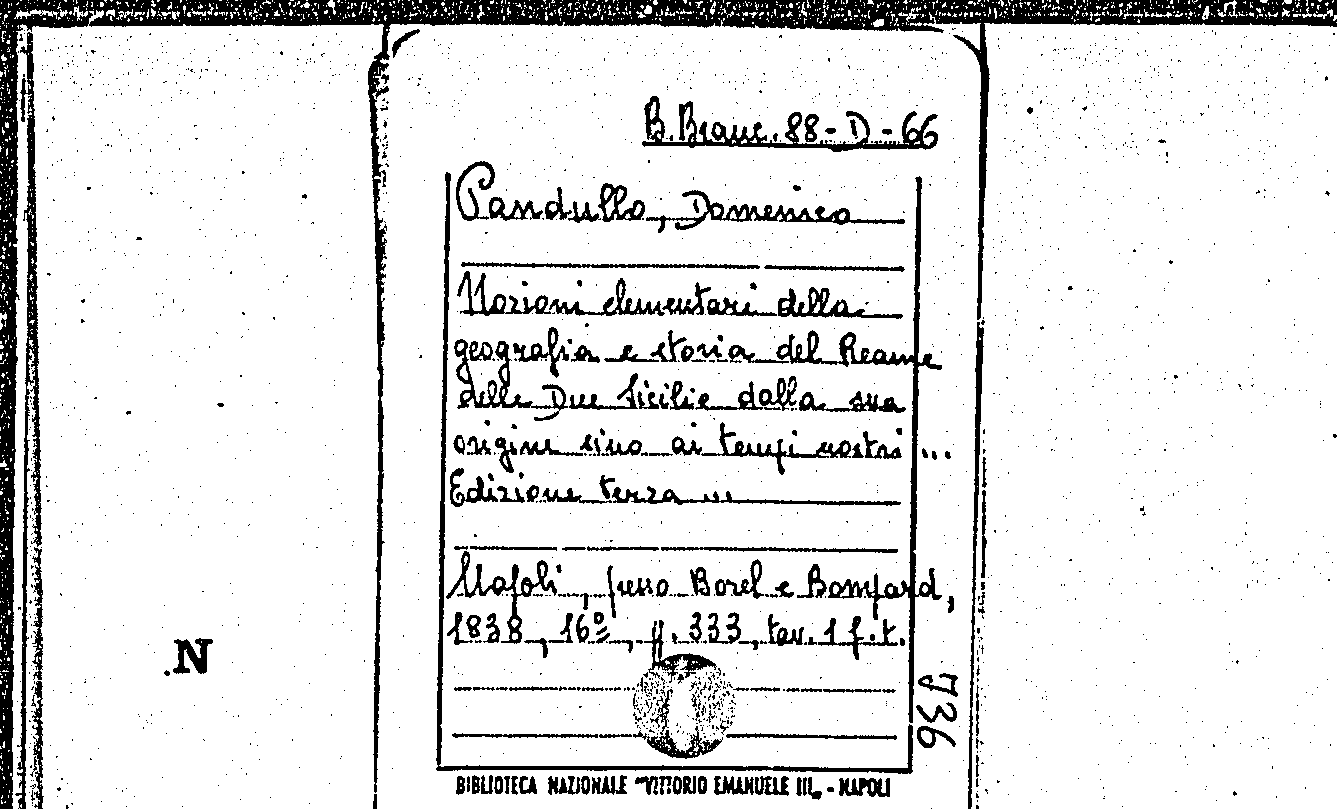 B. Branc. 88-D-66
Pandullo, Domenico
Nozioni elementari della
geografia e storia del Reame
delle Due Sicilie dalla sua
origine sino ai tempi nostri ...
Edizione terza ...
Napoli, presso Borel e Bompard,
1838, 16º, p. 333, tav. 1 f.t.
736
.N
BIBLIOTECA NAZIONALE "VITTORIO EMANUELE III„ - NAPOLI